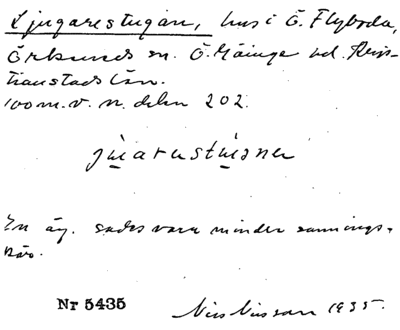 Ljugarestugan, hus i Ö. Flyboda,
Örkeneds sn. Ö. Göinge hd. Kris-
tianstads län.
100 m. v. n. delen 202.
En äg. sades vara minder sannings-
kär.
Nr 5435 Nils Nilsson 1935.